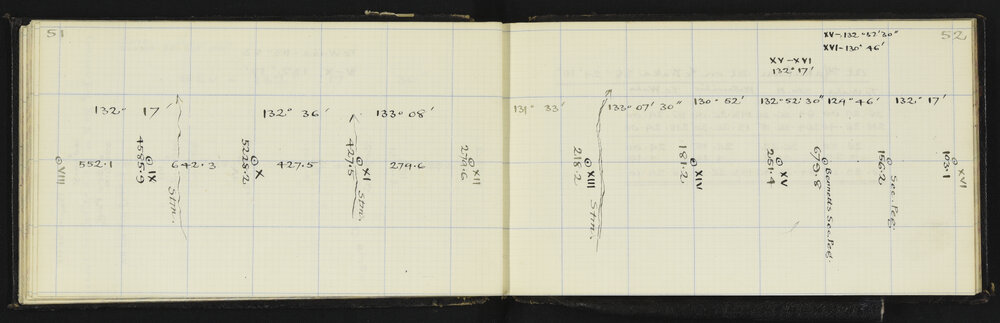 51
132° 17'
132° 36'
133° 08'
VIII
552.1
4585.9
IX
642.3
Stm.
5228.2
X
427.5
427.5
XI
Stm.
279.6
279.6
XII
52
XV-132°52'30"
XVI-130° 46'
XV-XVI
132° 17'
131° 33'
133° 07' 30"
130° 52'
132° 52' 30"
124° 46'
132° 17'
218.2
XIII
Stm.
181.2
XIV
251.4
XV
679.8
Bennetts Sec. Peg.
156.2
Sec. Peg.
103.1
XVI